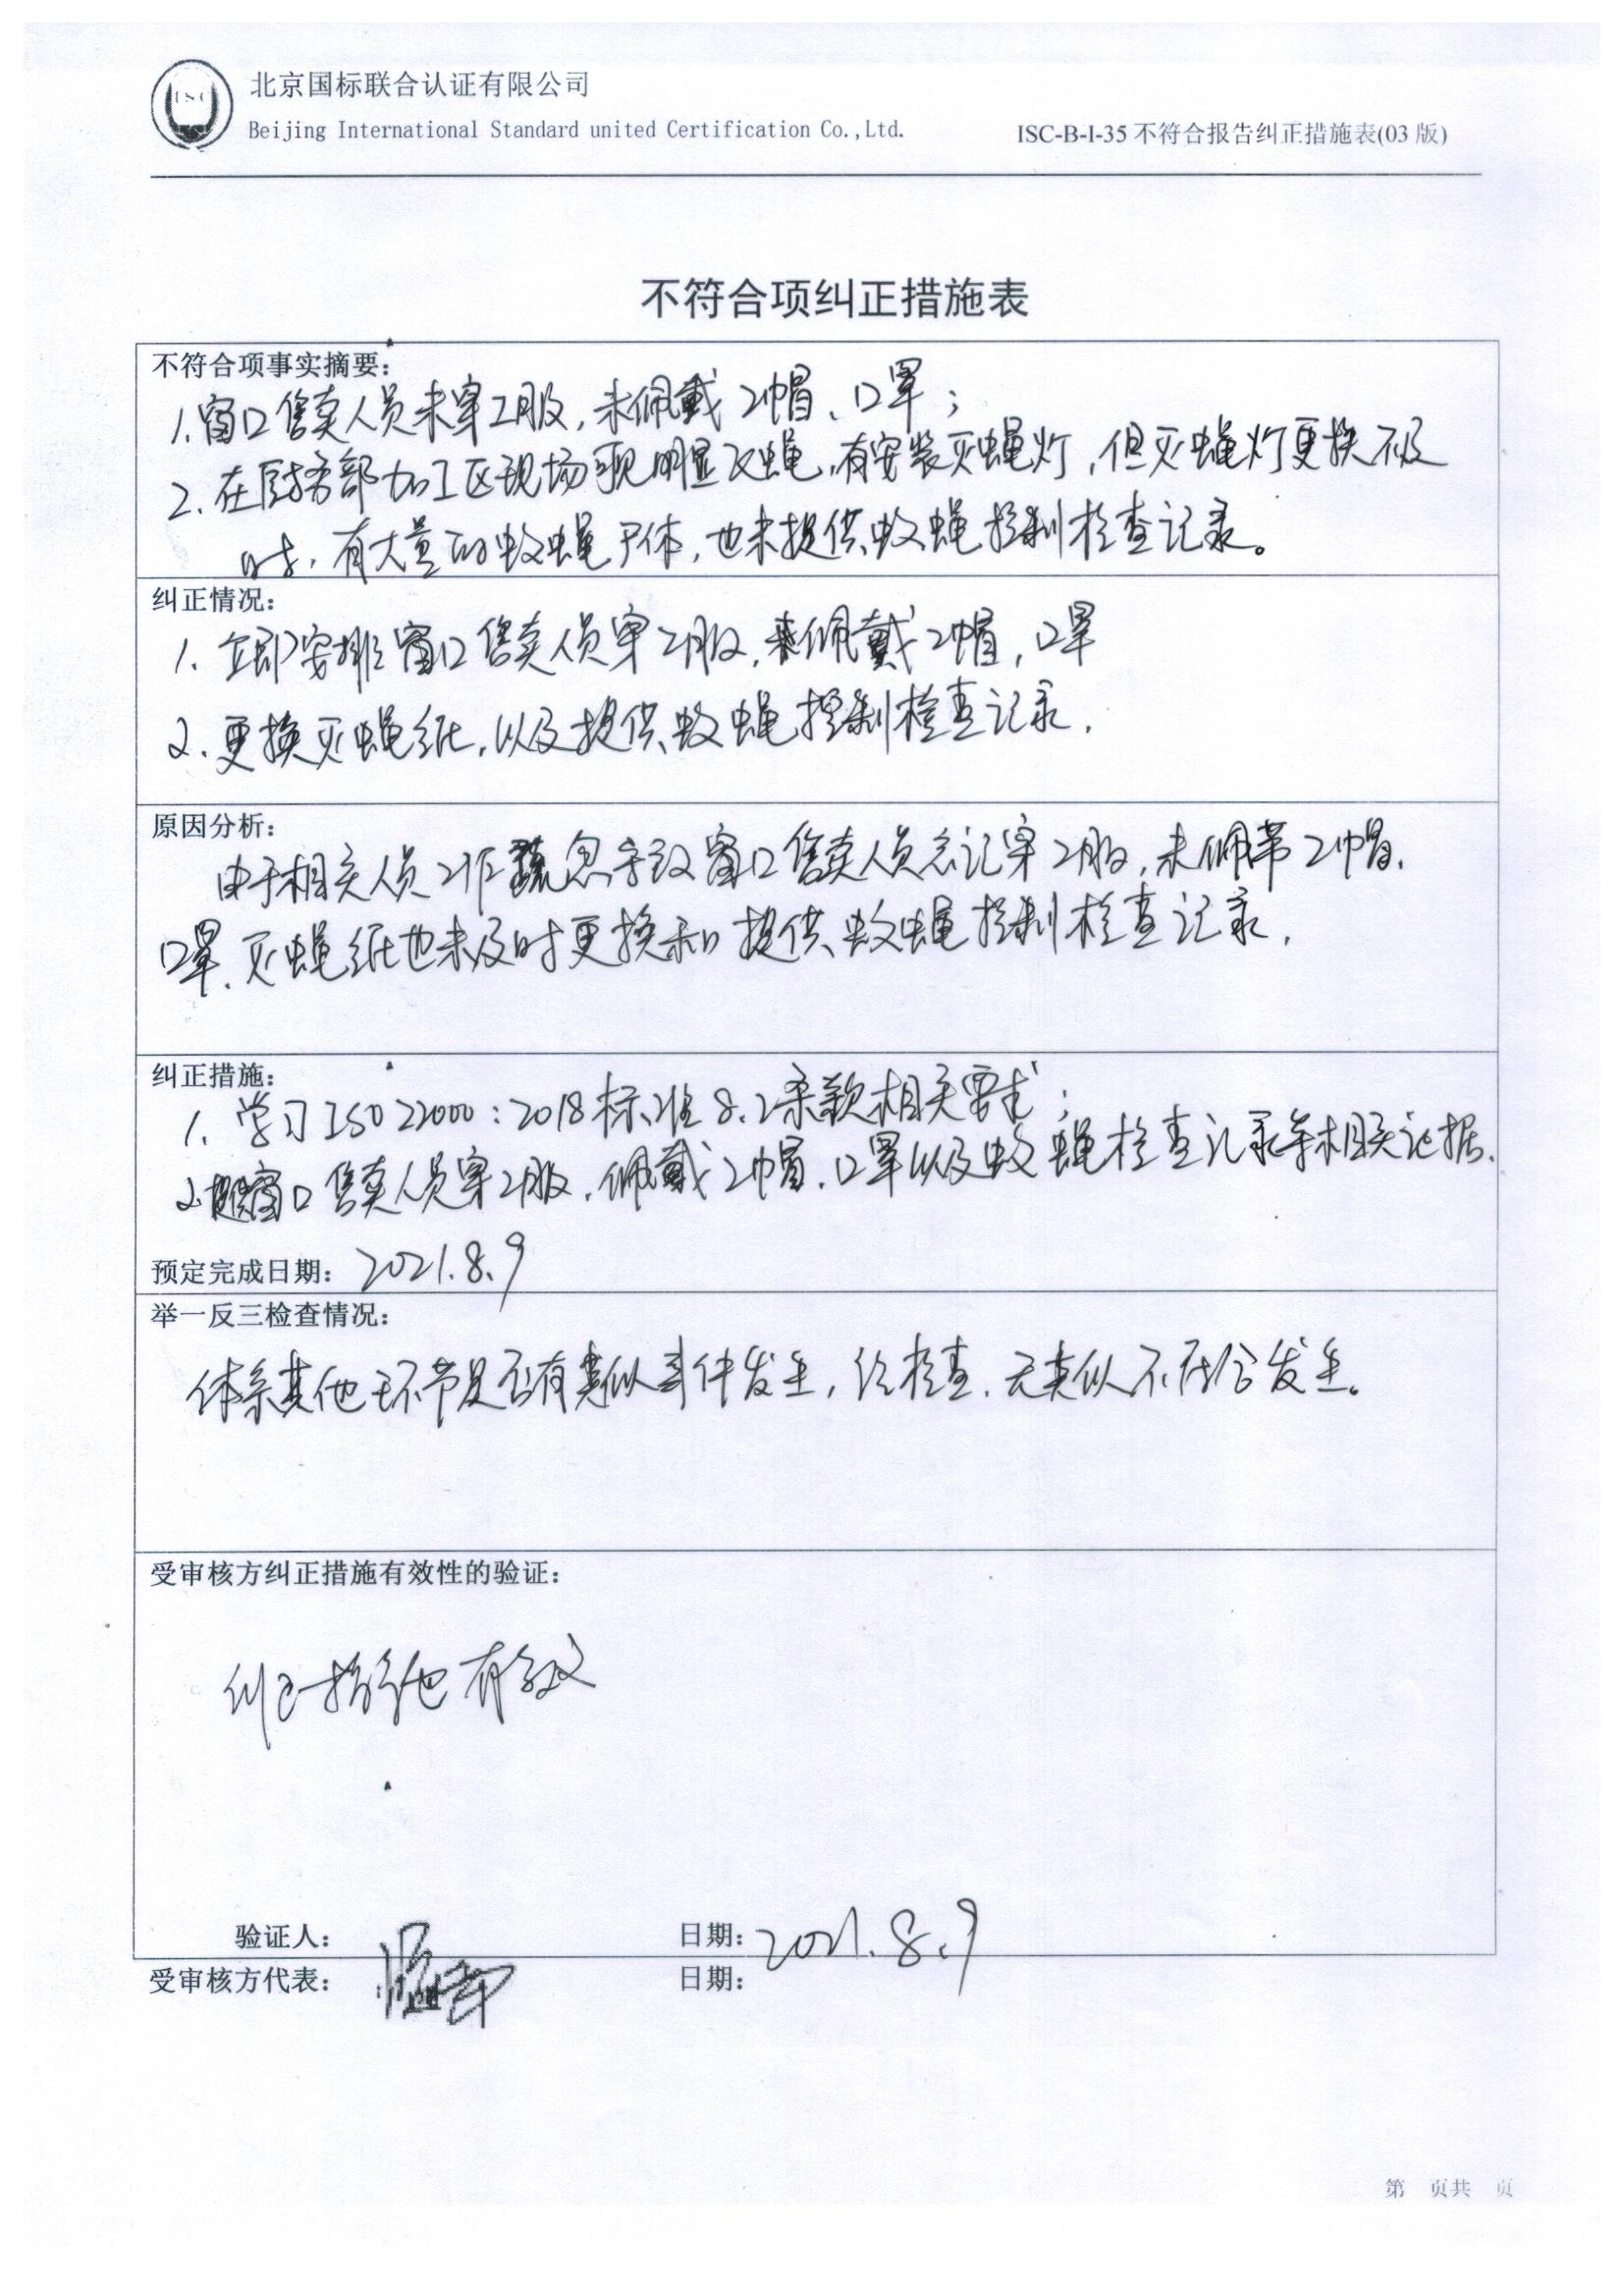 ISC
北京国标联合认证有限公司
Beijing International Standard united Certification Co.,Ltd.
ISC-B-I-35 不符合报告纠正措施表(03 版)
不符合项纠正措施表
不符合项事实摘要：
1.窗口售卖人员未穿工服，未佩戴工帽、口罩；
2.在厨务部加工区现场可见明显飞蝇，有安装灭蝇灯，但灭蝇灯更换不及
时，有大量的蚊蝇尸体，也未提供蚊蝇控制检查记录。
纠正情况：
1.立即安排窗口售卖人员穿工服，佩戴工帽，口罩
2.更换灭蝇纸，以及提供蚊蝇控制检查记录.
原因分析：
由于相关人员工作疏忽导致窗口售卖人员忘记穿工服，未佩带工帽、
口罩、灭蝇纸也未及时更换和提供蚊蝇控制检查记录.
纠正措施：
1.学习ISO 22000：2018标准8.2条款相关要求；
2.窗口售卖人员穿工服，佩戴工帽、口罩以及蚊蝇检查记录等相关证据.
预定完成日期：2021.8.9
举一反三检查情况：
体系其他环节是否有类似事件发生，经检查，无类似不符合发生。
受审核方纠正措施有效性的验证：
纠正措施有效
验证人： 日期：2021.8.9
受审核方代表： 日期：
第 页共 页